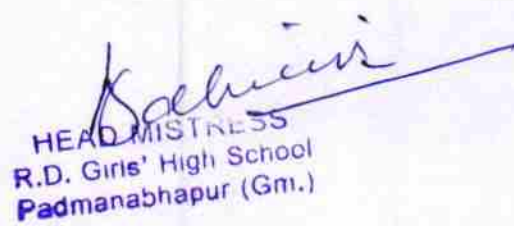 HEAD MISTRESS
R.D. Girls' High School
Padmanabhapur (Gm.)